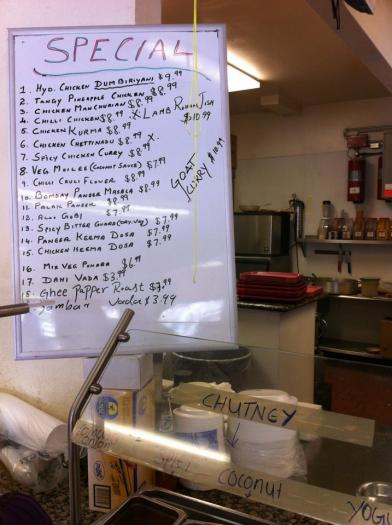 SPECIAL
1. HYD. CHICKEN DUM BIRIYANI $9.99
2. TANGY PINEAPPLE CHICKEN $8.99
3. CHICKEN MANCHURIAN $8.99
4. CHILLI CHICKEN $8.99 X LAMB ROGAN JOSH $10.99
5. CHICKEN KURMA $8.99
6. CHICKEN CHETTINADU $8.99 X
7. SPICY CHICKEN CURRY $8.99
8. VEG MOILEE (COCONUT SAUCE) $7.99
9. CHILLI CAULI FLOWER $8.99
10. BOMBAY PANEER MASALA $8.99
11. PALAK PANEER $8.99
12. ALOO GOBI $7.99
13. SPICY BITTER GUARD (DRY, VEG) $7.99
14. PANEER KEEMA DOSA $7.99
15. CHICKEN KEEMA DOSA $7.99
16. MIX VEG PAKORA $6.99
17. DAHI VADA $3.99
18. Ghee Papper Roast $7.99
Sambar Vada $3.99
GOAT CURRY
CHUTNEY
↓
COCONUT
YOGU